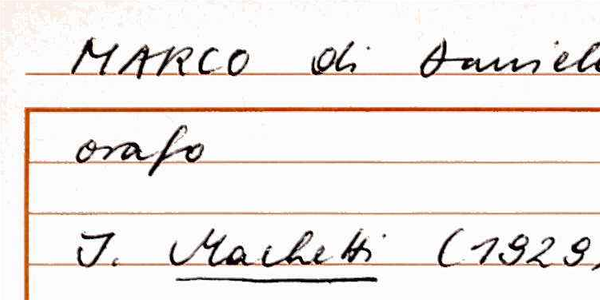 MARCO di Daniele
orafo
I. Machetti (1929,